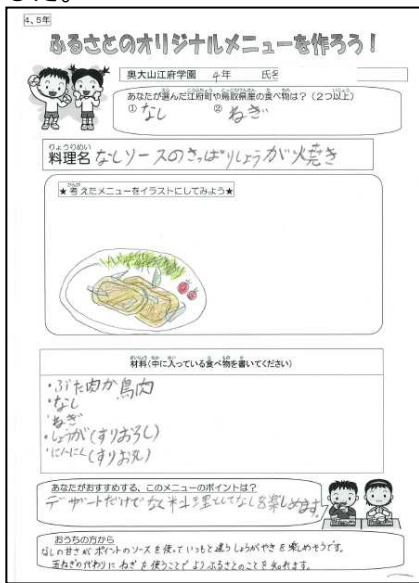 した。
4、5年
ふるさとのオリジナルメニューを作ろう！
奥大山江府学園 4年 氏名
あなたが選んだ江府町や鳥取県産の食べ物は？（2つ以上）
① なし ② ねぎ
料理名 なしソースのさっぱりしょうが焼き
★考えたメニューをイラストにしてみよう★
材料（中に入っている食べ物を書いてください）
・ぶた肉か鳥肉
・なし
・ねぎ
・しょうが（すりおろし）
・にんにく（すりおろし）
あなたがおすすめする、このメニューのポイントは？
デザートだけでなく料理としてなしを楽しめます。
おうちの方から
なしの甘さがポイントのソースを使っていつもと違うしょうがやきを楽しめそうです。
玉ねぎの代わりにねぎを使うことでよりふるさとのことを知れます。